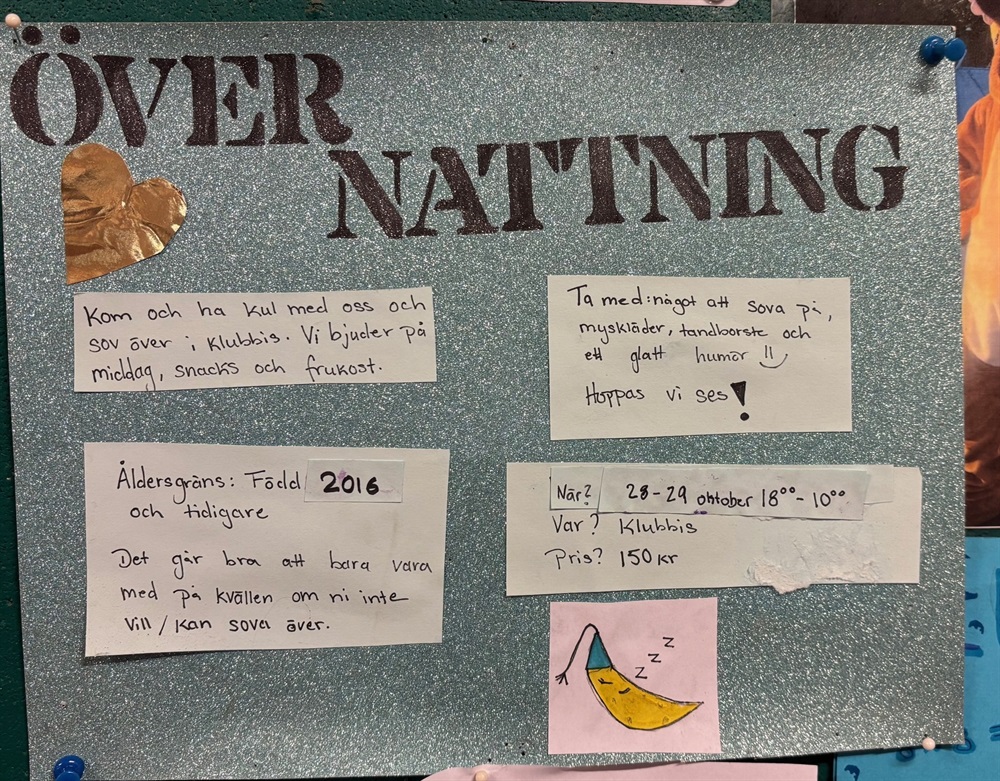 ÖVER
NATTNING
Kom och ha kul med oss och
sov över i klubbis. Vi bjuder på
middag, snacks och frukost.
Ta med: något att sova på,
myskläder, tandborste och
ett glatt humör !!
Hoppas vi ses!
Åldersgräns: Född 2016
och tidigare
Det går bra att bara vara
med på kvällen om ni inte
vill/kan sova över.
När? 28-29 oktober 18⁰⁰-10⁰⁰
Var? Klubbis
Pris? 150 kr
z
z
z